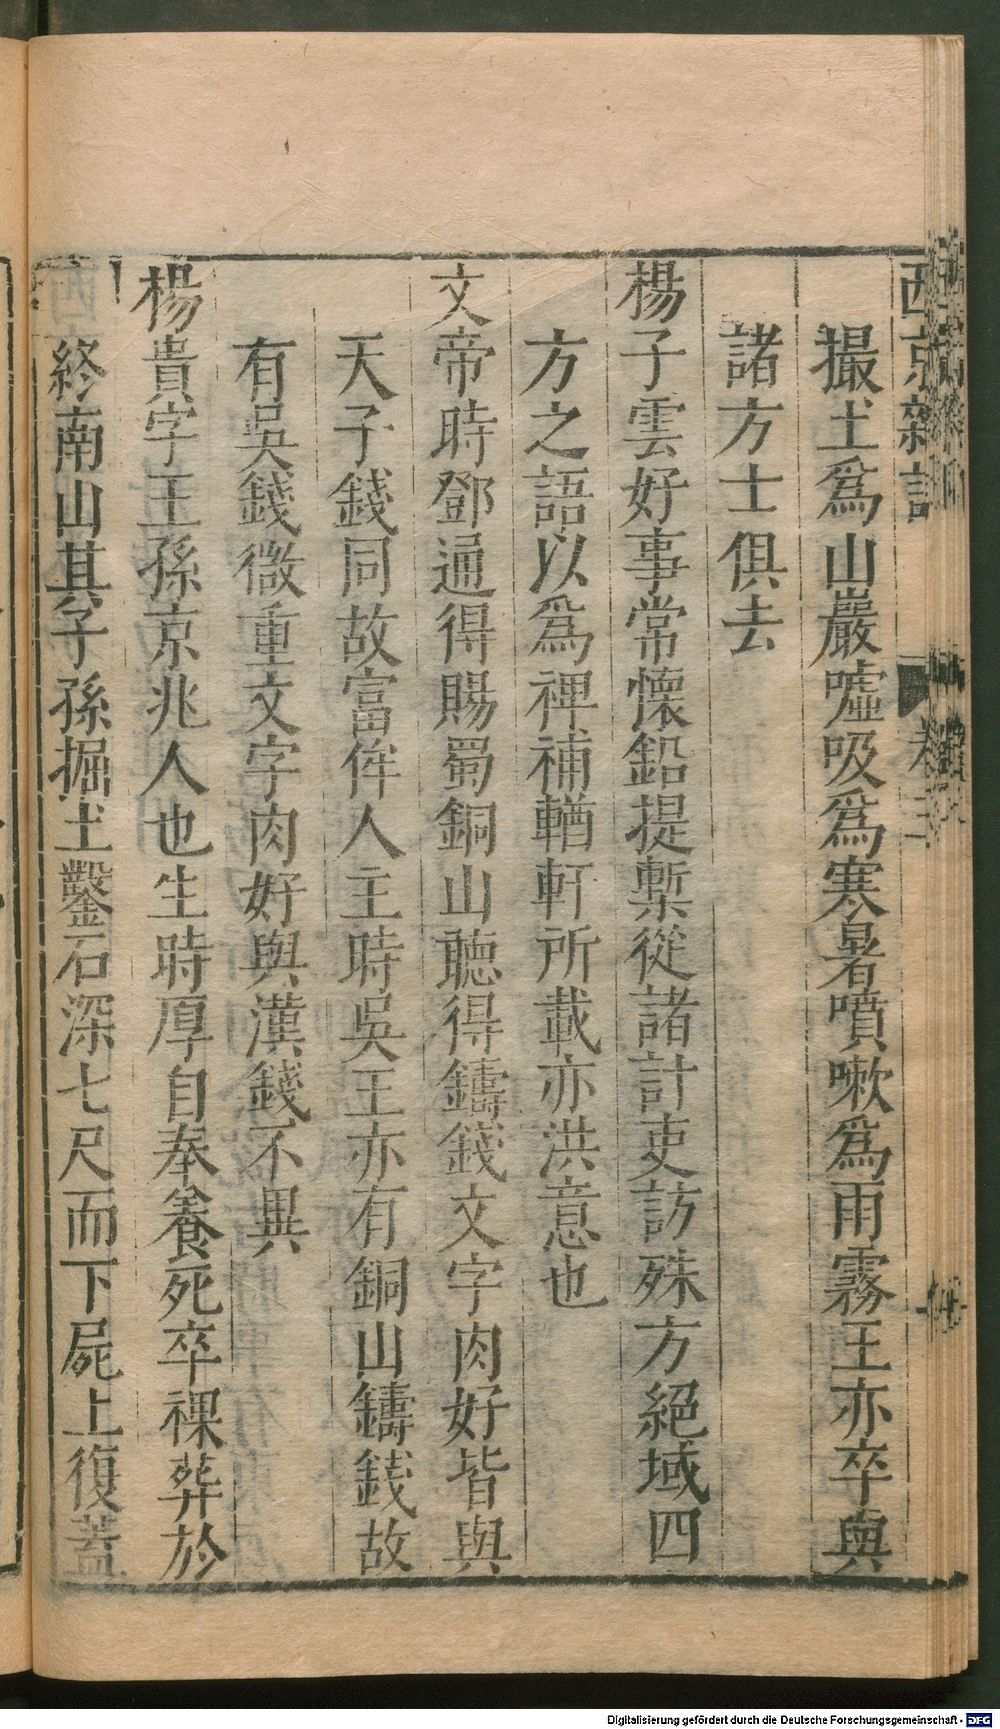 西京雜記 卷三
撮土爲山巖噓吸爲寒暑噴嗽爲雨霧王亦卒與
諸方士俱去
楊子雲好事常懷鉛提槧從諸計吏訪殊方絕域四
方之語以爲裨補輶軒所載亦洪意也
文帝時鄧通得賜蜀銅山聽得鑄錢文字肉好皆與
天子錢同故富侔人主時吳王亦有銅山鑄錢故
有吳錢微重文字肉好與漢錢不異
楊貴字王孫京兆人也生時厚自奉養死卒裸葬於
終南山其子孫掘土鑿石深七尺而下屍上復蓋
Digitalisierung gefördert durch die Deutsche Forschungsgemeinschaft - DFG